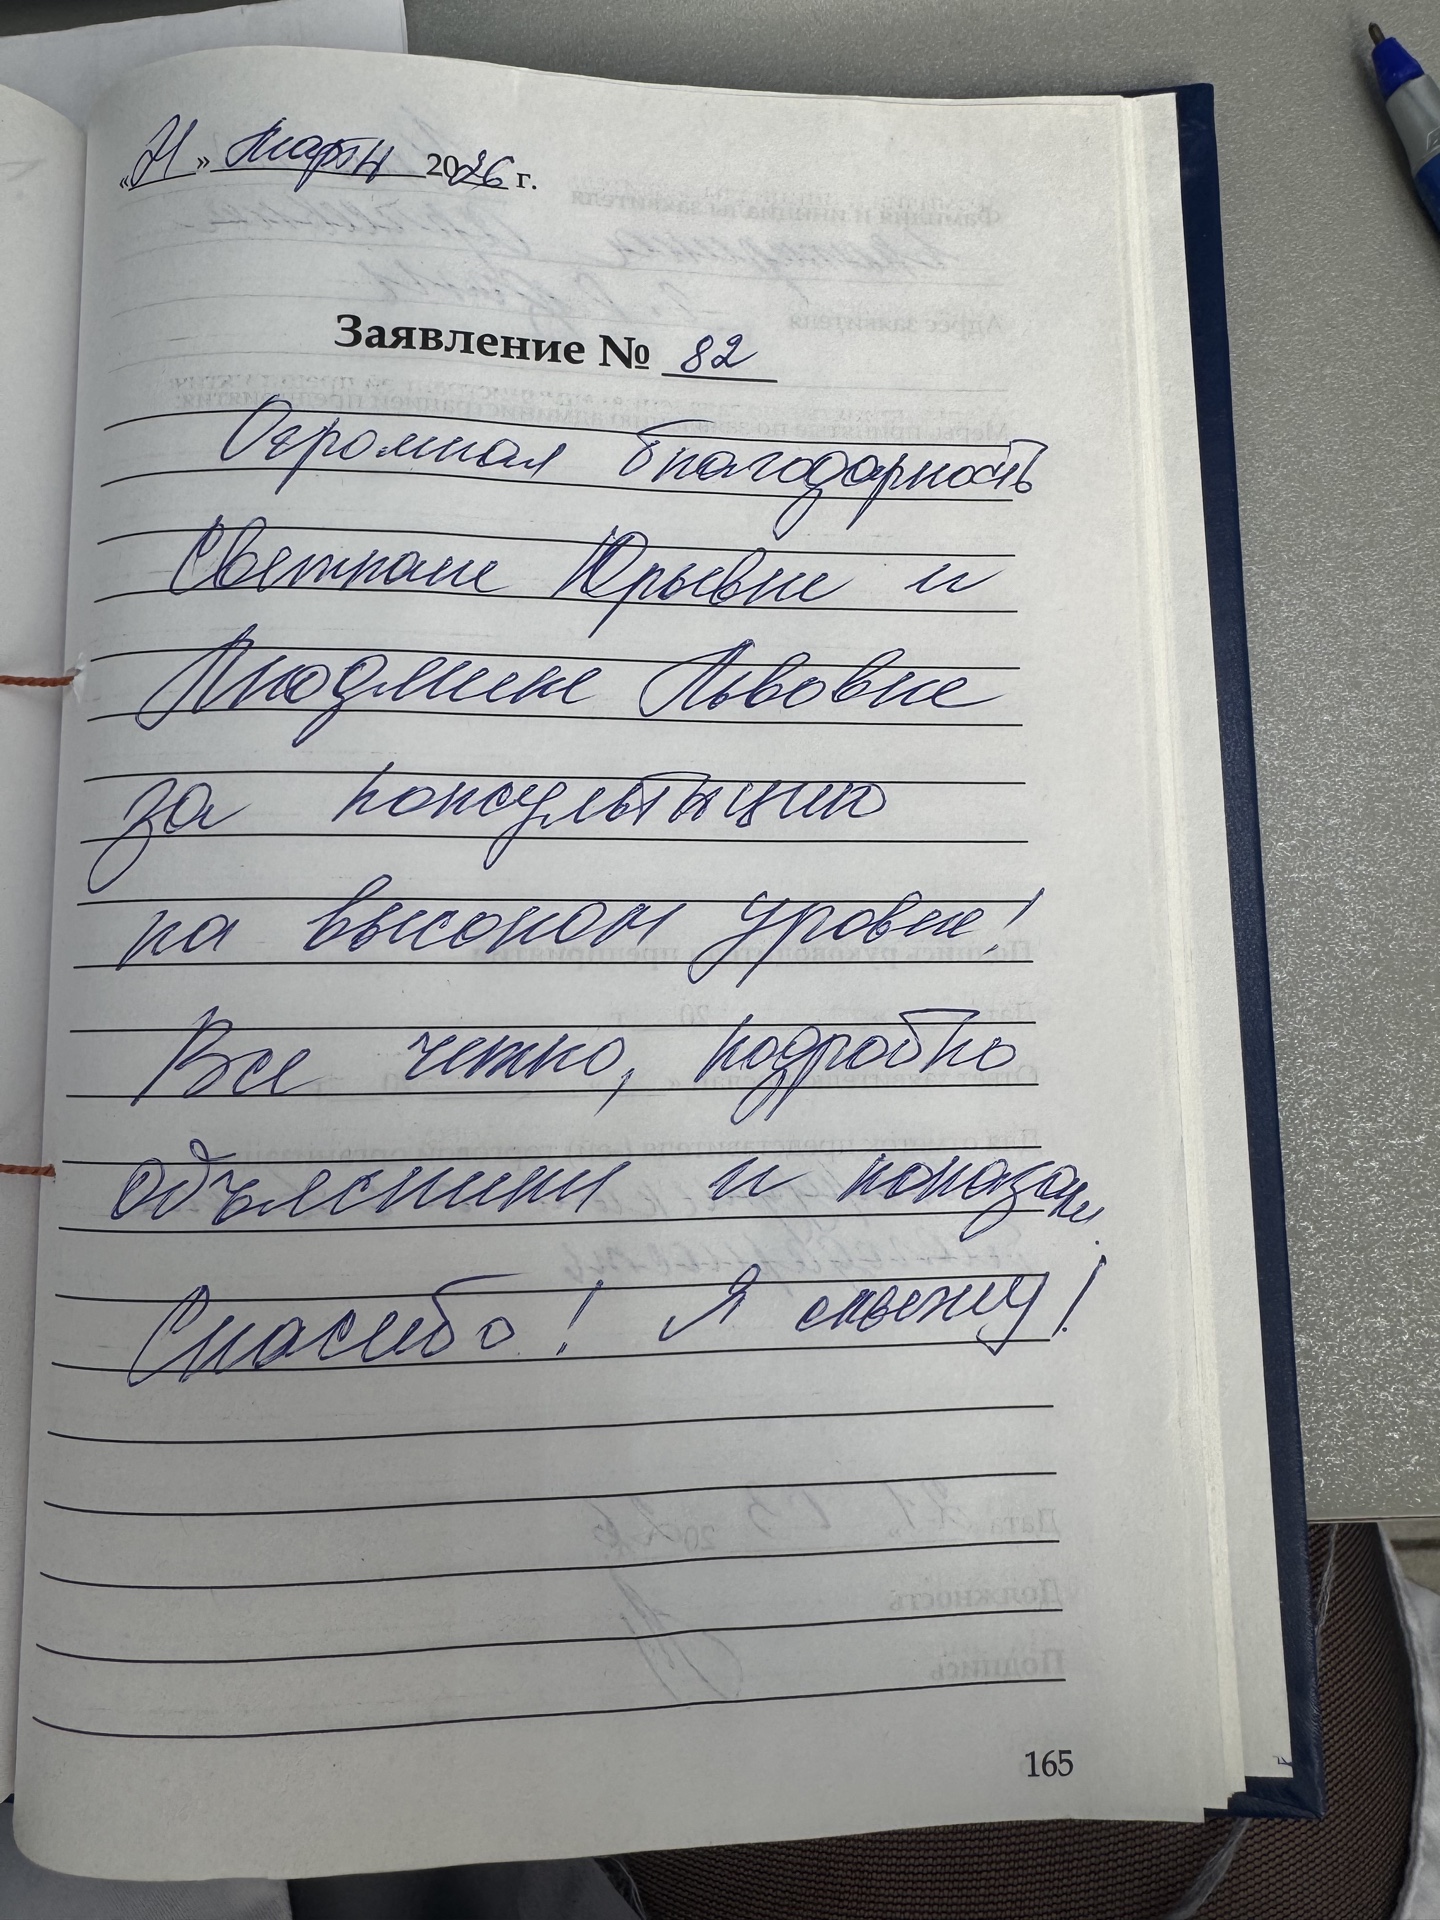 «21» марта 2026 г.
Заявление № 82
Огромная благодарность
Светлане Юрьевне и
Людмиле Львовне
за консультацию
на высоком уровне!
Все четко, подробно
объяснили и показали.
Спасибо! Я слышу!
165